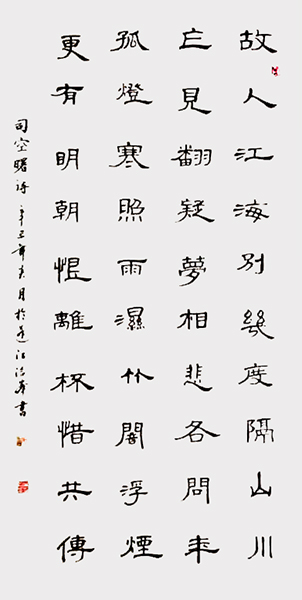 故人江海別幾度隔山川
乍見翻疑夢相悲各問年
孤燈寒照雨濕竹闇浮煙
更有明朝恨離杯惜共傳
司空曙詩辛丑年月於江書